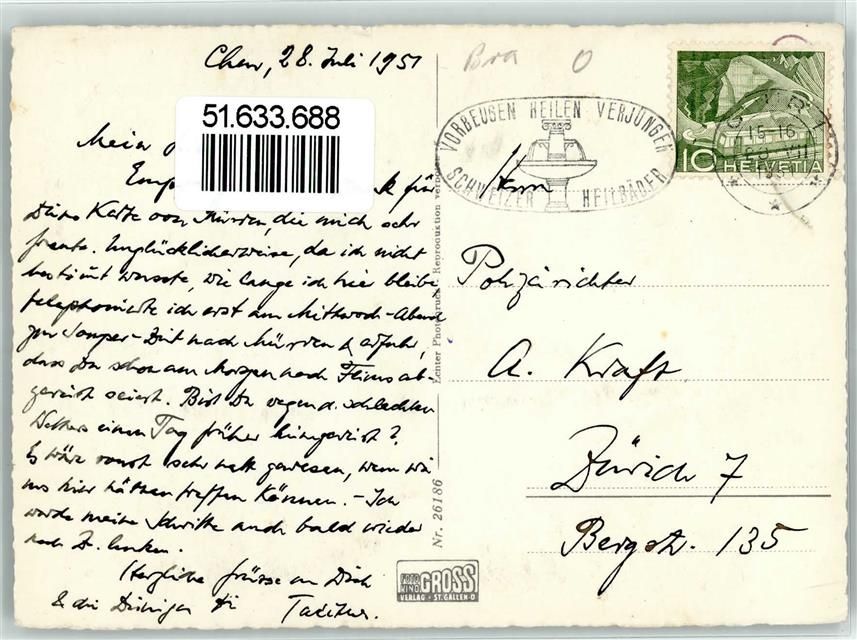 Chur, 28. Juli 1951
51.633.688
Mein
Empf für
Deine Karte von Mürren, die mich sehr
freute. Unglücklicherweise, da ich nicht
bestimmt wusste, wie lange ich hier bleibe
telephonierte ich erst am Mittwoch-Abend
zur Souper-Zeit nach Mürren & erfuhr,
dass Du schon am Morgen nach Flims ab-
gereist seiest. Bist Du wegen d. schlechten
Wetters einen Tag früher hingereist?
Es wäre sonst sehr nett gewesen, wenn wir
uns hier hätten treffen können. - Ich
werde meine Schritte auch bald wieder
nach Z. lenken.
Herzliche Grüsse an Dich
& die Deinigen
Bra
VORBEUGEN HEILEN VERJÜNGEN
SCHWEIZER HEILBÄDER
10 HELVETIA
15-16
28. VII
1951
Herrn
Polizeirichter
A. Kraft
Zürich 7
Bergstr. 135
Nr. 26186
FOTO GROSS
VERLAG · ST. GALLEN-O